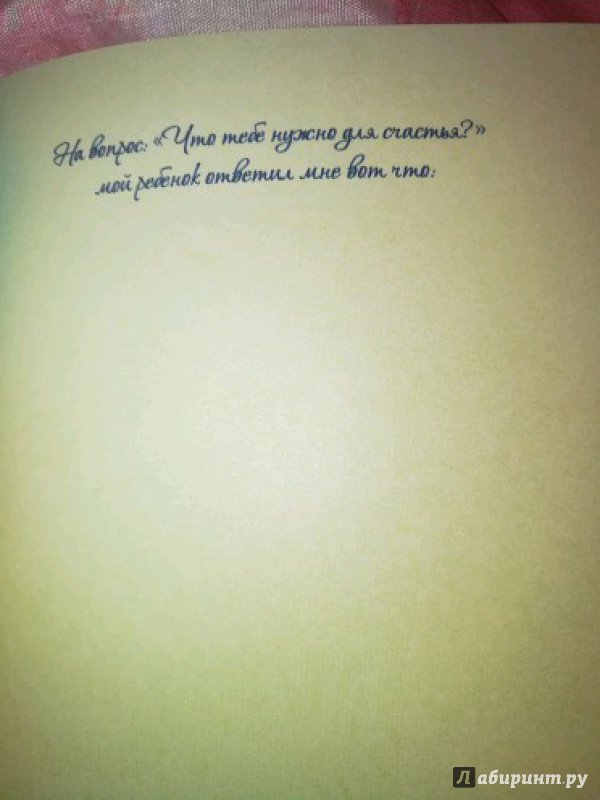 На вопрос: «Что тебе нужно для счастья?»
мой ребенок ответил мне вот что:
Лабиринт.ру